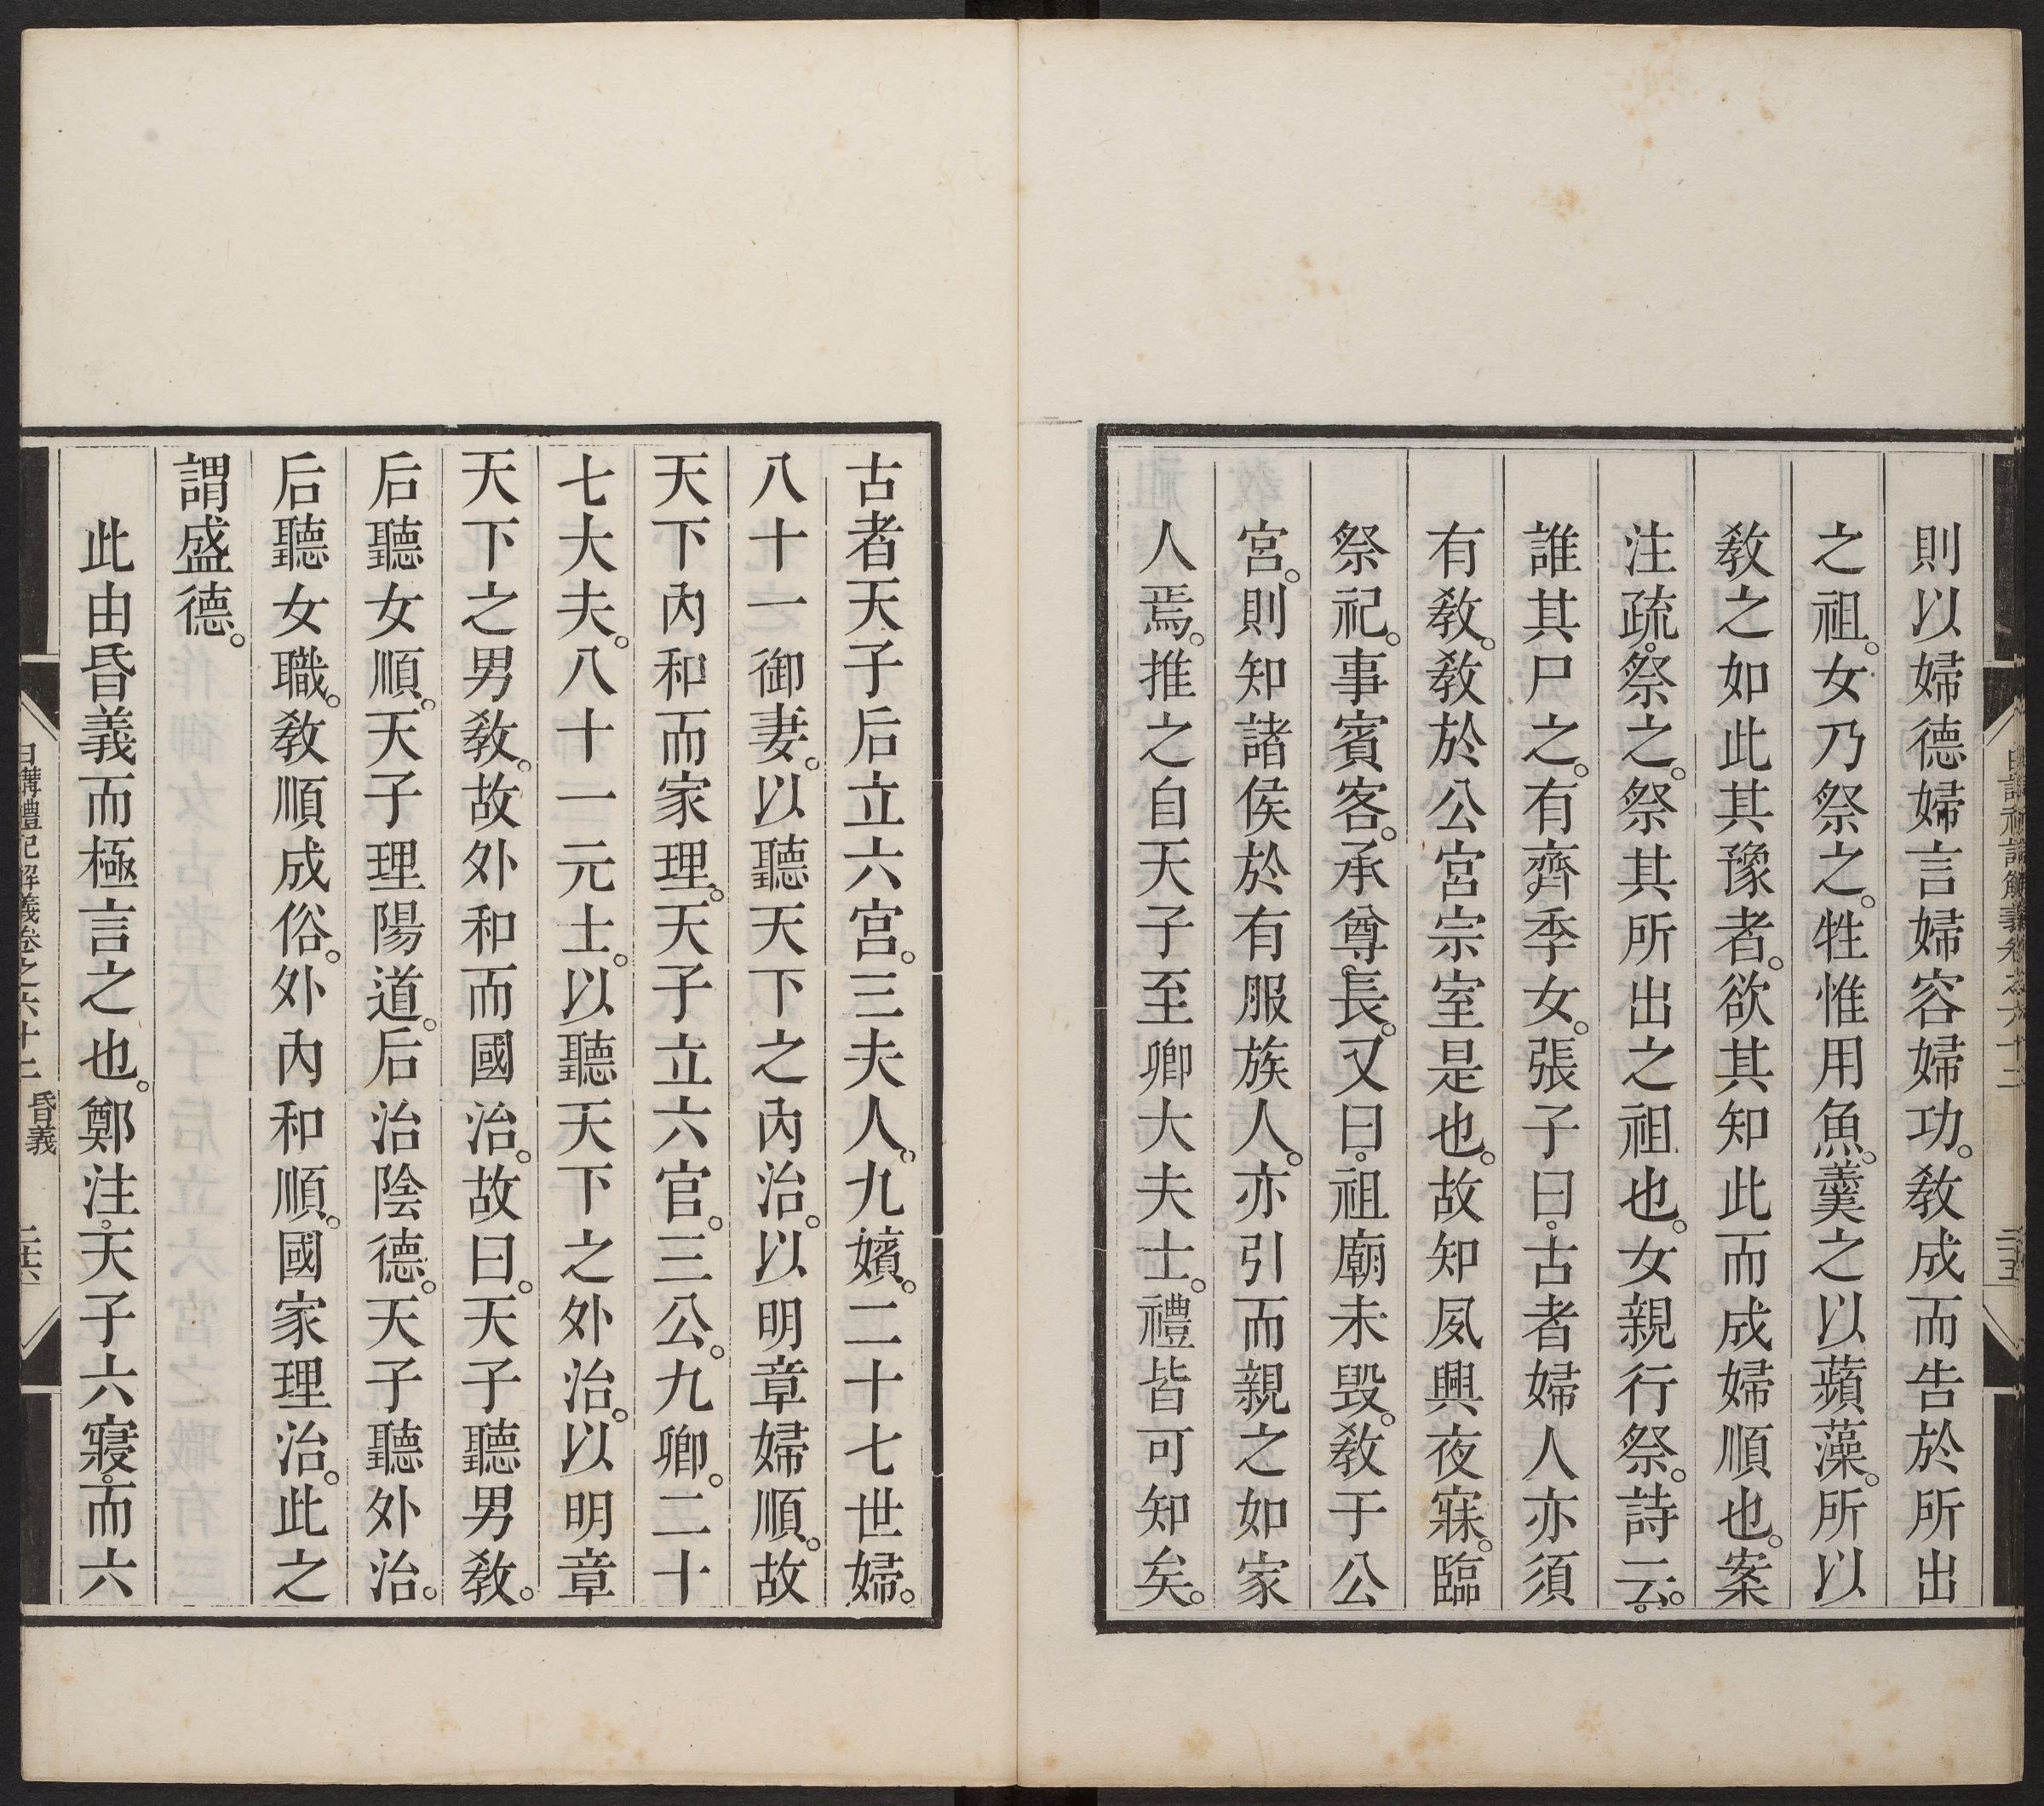 則以婦德婦言婦容婦功。教成而告於所出
之祖。女乃祭之。牲惟用魚。羹之以蘋藻。所以
教之如此其豫者。欲其知此而成婦順也。案
注疏。祭之。祭其所出之祖也。女親行祭。詩云。
誰其尸之。有齊季女。張子曰。古者婦人亦須
有教。教於公宮宗室是也。故知夙興夜寐。臨
祭祀。事賓客。承尊長。又曰。祖廟未毀。教于公
宮。則知諸侯於有服族人。亦引而親之如家
人焉。推之自天子至卿大夫士。禮皆可知矣。
古者天子后立六宮。三夫人。九嬪。二十七世婦。
八十一御妻。以聽天下之內治。以明章婦順。故
天下內和而家理。天子立六官。三公。九卿。二十
七大夫。八十一元士。以聽天下之外治。以明章
天下之男教。故外和而國治。故曰。天子聽男教。
后聽女順。天子理陽道。后治陰德。天子聽外治。
后聽女職。教順成俗。外內和順。國家理治。此之
謂盛德。
此由昏義而極言之也。鄭注。天子六寢。而六
日講禮記解義卷之六十二 昏義 二十六